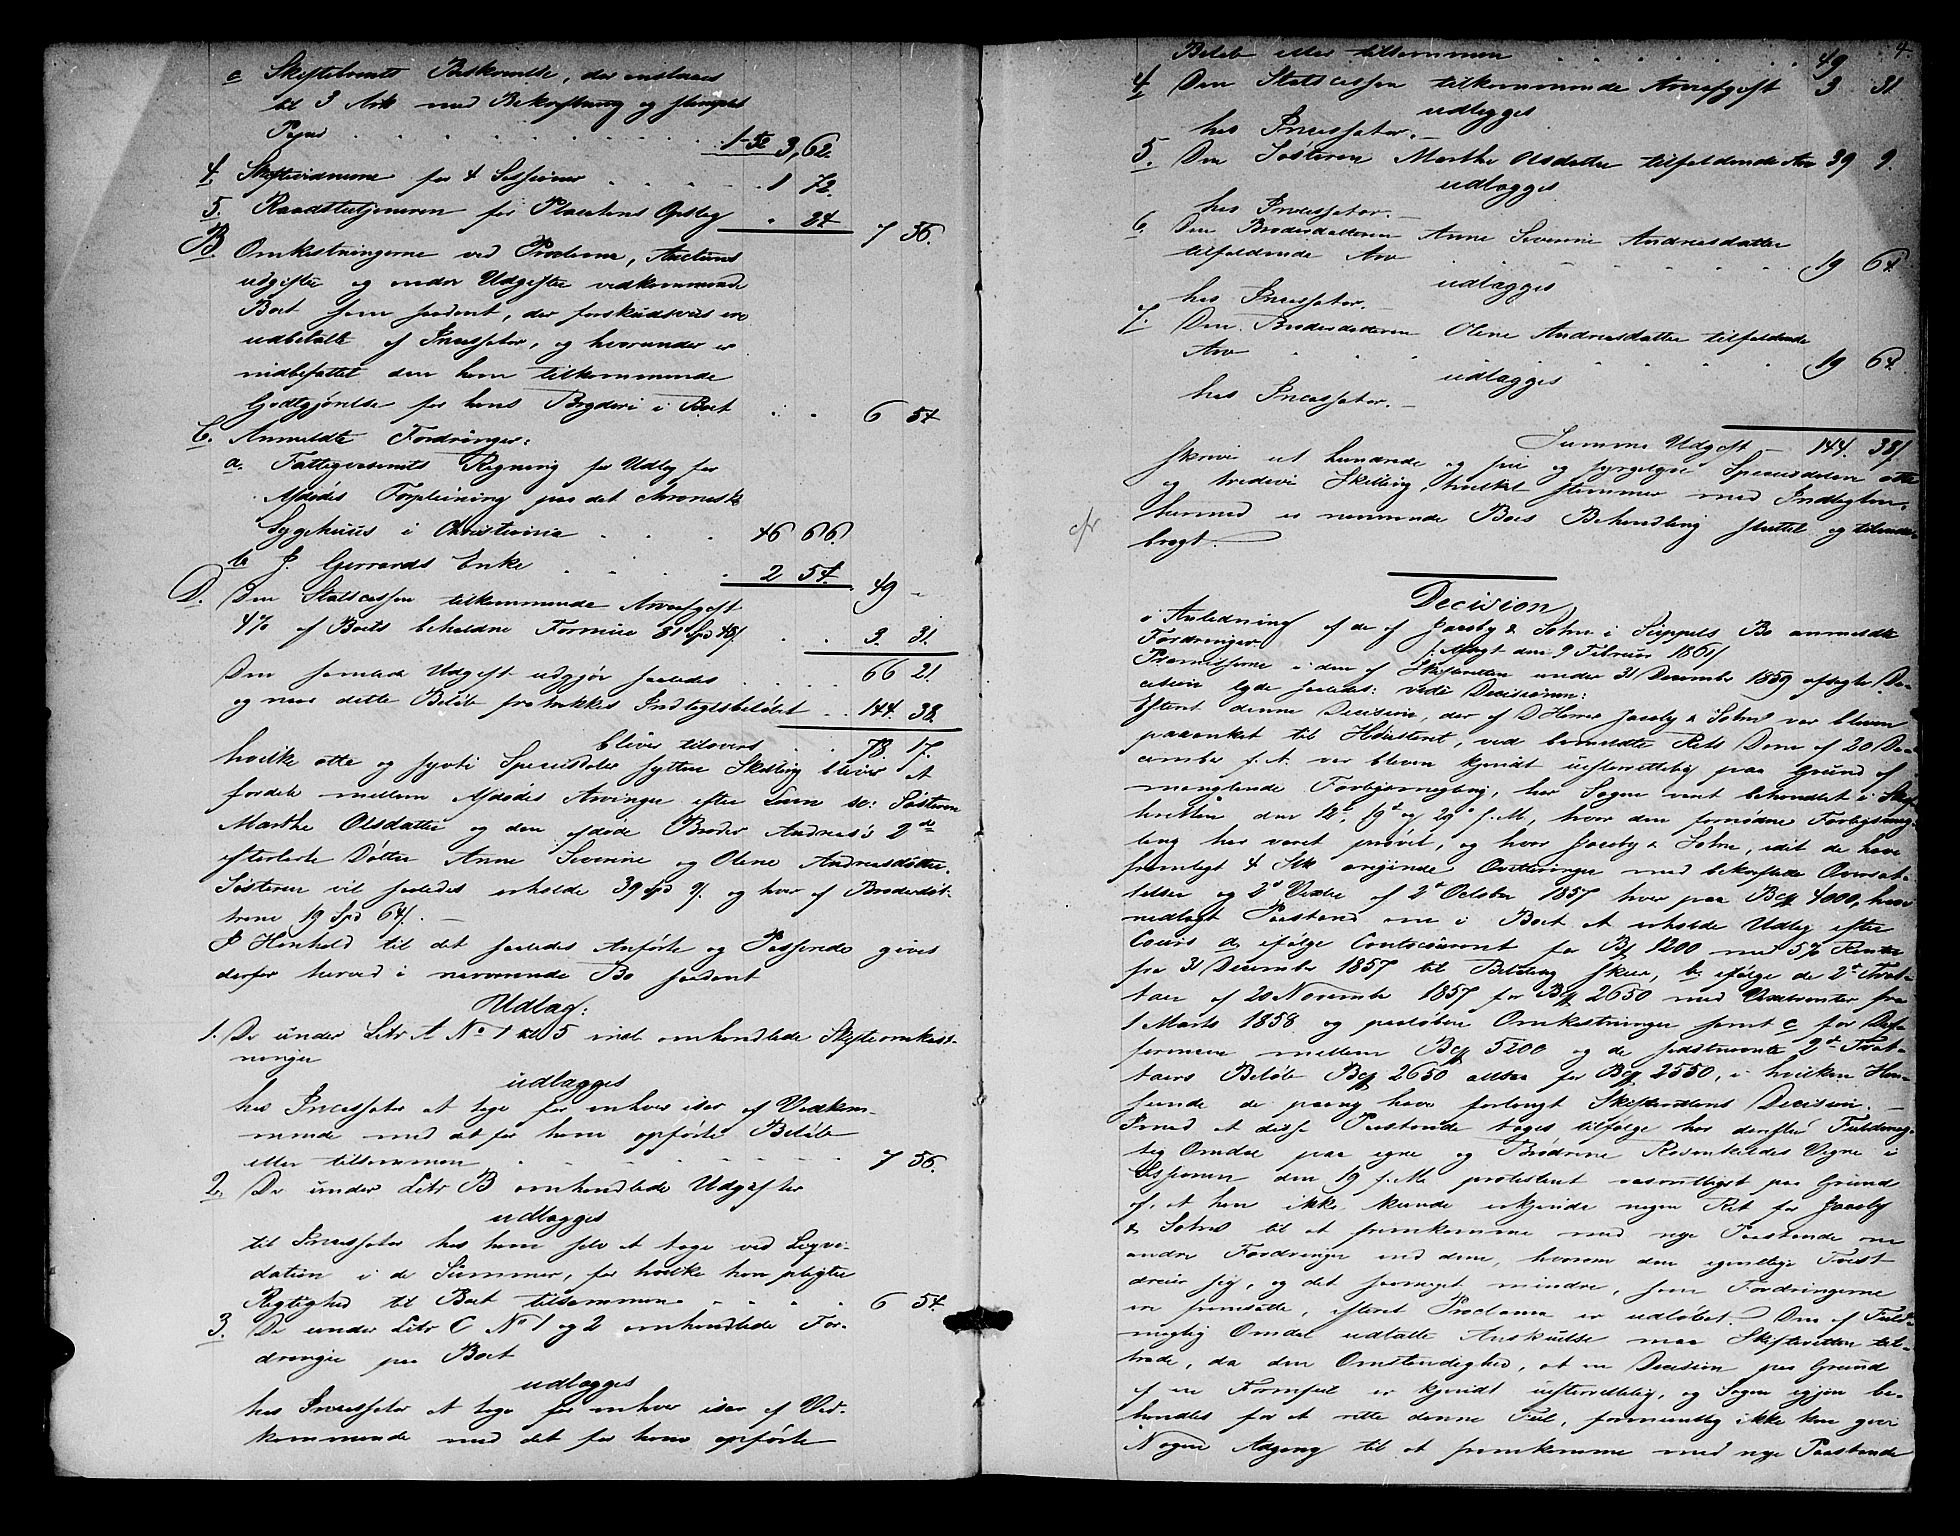 c Skiftebrevets Beskrivelse, der anslaaes
til 3 Ark med Bekræftning og stemplet
Papir . . . . . 1-52 3,62.
4. Skiftevidnerne for 4 Sessioner . . . 1 72.
5. Raadstutjeneren for Placatens Opslag " 84. 7 56.
B. Omkostningerne ved Proclama, Auctions
udgifter og andre Udgifter vedkommende
Boet som saadant, der forskudsvis ere
udbetalte af Incassator, og hvorunder er
indbefattet den ham tilkommende
Godtgjørelse for hans Bryderi i Boet . . 6 54
C. Anmeldte Fordringer:
a. Fattigvæsenets Regning for Udlæg for
Afdødes Forpleining paa det chroniske
Sygehuus i Christiania . . . 46 66.
b J. Gerrards Enke . . . . 2 54. 49 "
D. Den Statscassen tilkommende Arveafgift
4% af Boets beholdne Formue 81 Spd 48 ß . . 3. 31.
Den samlede Udgift udgjør saaledes . . . 66 21.
og naar dette Beløb fratrækkes Indtægtsbeløbet . . 144. 38.
bliver tilovers . . 78. 17.
hvilke otte og syvti Speciesdaler sytten Skilling bliver at
fordele mellem Afdødes Arvinger efter Loven so: Søsteren
Marthe Olsdatter og den afdøde Broder Andreas's 2de
efterladte Døttre Anne Severine og Olene Andreasdøttre.
Søsteren vil saaledes erholde 39 Spd 9 ß. og hver af Broderdøt-
trene 19 Spd 64 ß. —
I Henhold til det saaledes Anførte og Passerede gives
derfor herved i nærværende Bo saadant
Udlæg:
1. De under Litr A No 1 til 5 incl. omhandlede Skifteomkost-
ninger
udlægges
hos Incassator at tage for enhver især af Vedkom-
mende med det for ham opførte Beløb
eller tilsammen . . . . . 7 56.
2. De under Litr B omhandlede Udgifter
udlægges
til Incassator hos ham selv at tage ved Liqvi-
dation i de Summer, for hvilke han pligter
Rigtighed til Boet tilsammen . . . . 6 54.
3. De under Litr C No 1 og 2 omhandlede For-
dringer paa Boet
udlægges
hos Incassator at tage for enhver især af Ved-
kommende med det for ham opførte
4.
Beløb eller tilsammen . . . . . 49 "
4. Den Statscassen tilkommende Arveafgift 3 31.
udlægges
hos Incassator. —
5. Den Søsteren Marthe Olsdatter tilfaldende Arv 39 9.
udlægges
hos Incassator. —
6. Den Broderdatteren Anne Severine Andreasdatter
tilfaldende Arv . . . . . 19 64.
udlægges
hos Incassator. —
7. Den Broderdatteren Olene Andreasdatter tilfaldende
Arv . . . . . 19 64.
udlægges
hos Incassator. —
Summa Udgift — 144. 38 ß
skriver et hundrede og fire og fyrgetyve Speciesdaler otte
og tredive Skilling, hvilket stemmer med Indtægten.
hermed er nærværende Boes Behandling sluttet og tilende-
bragt.
cfr
Decision
i Anledning af de af Jacoby & Søhne i Suppels Bo anmeldte
Fordringer
afsagt den 9 Februar 1861
Præmisserne i den af Skifteretten under 31 December 1859 afsagte De-
cision lyde saaledes: vide Decisionen:
Efterat denne Decision, der af D'Herrer Jacoby & Søhne var bleven
paaanket til Høiesteret, ved bemeldte Rets Dom af 20 De-
cember f. A. var bleven kjendt uefterrettelig paa Grund af
manglende Forligsmægling, har Sagen været behandlet i Skif-
teretten den 12te, 19de og 29de f. M., hvor den fornødne Forligsmæg-
ling har været prøvet, og hvor Jacoby & Søhne, idet de have
fremlagt 4 Stk originale Qvitteringer med bekræftede Oversæt-
telser og 2de Vexler af 2de October 1857 hver paa Bcf 4000, have
nedlagt Paastand om i Boet at erholde Udlæg efter
Cours a, ifølge Contocourant for Bcf 1200 med 5% Renter
fra 31 December 1857 til Betaling skeer, b, ifølge de 2de Trat-
taer af 20 November 1857 for Bcf 2650 med Vexelrenter fra
1 Marts 1858 og paaløbne Omkostninger samt c for Dif-
ferencen mellem Bcf 5200 og de sidstnævnte 2de Trat-
taers Beløb Bcf 2650 altsaa for Bcf 2550, i hvilken Hen-
seende de paany have forlangt Skifterettens Decision. —
Imod at disse Paastande tages tilfølge har derefter Fuldmæg-
tig Omdal paa egne og Brødrene Rosenkildes Vegne i
Sessionen den 19 f. M. protesteret væsentligst paa Grund
af, at han ikke kunde erkjende nogen Ret for Jacoby
& Søhne til at fremkomme med nye Paastande om
andre Fordringer end dem, hvorom den egentlige Tvist
dreier sig, og det saameget mindre, som Fordringerne
ere fremsatte, efterat Proclama er udløbet. Den af Fuld-
mægtig Omdal udtalte Anskuelse maa Skifteretten til-
træde, da den Omstændighed, at en Decision paa Grund
af en Formfeil er kjendt uefterrettelig, og Sagen igjen be-
handles for at rette denne Feil, formeentlig ikke kan give
Nogen Adgang til at fremkomme med nye Paastande